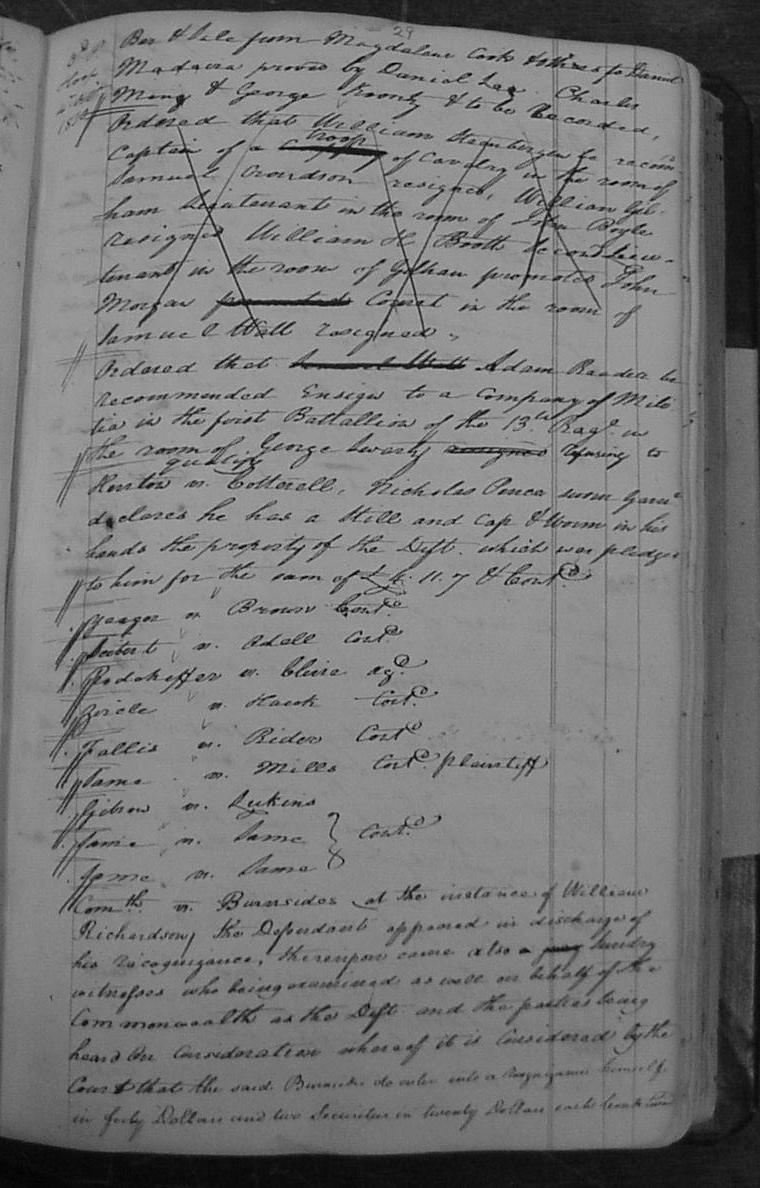 29
Bar & Sale from Magdalene Cook & others to Daniel
Madaira proved by Daniel Lee Charles
Ming & George Koontz & to be Recorded,
Ordered that William Harnberger be recom
Captain of a troop of Cavalry in the room of
Samuel Croudson resigned, William Gil-
ham Lieutenant in the room of John Boyle
resigned William H Booth second Lieu-
tenant in the room of Gilham promoted John
Morgan promoted Cornet in the room of
Samuel Wall resigned,
Ordered that Samuel Wall Adam Raeder be
recommended Ensign to a Company of Mili
tia in the first Battallion of the 13th Regt. in
the room of George Swartz resigned refusing to
qualify
Huston vs. Cotterell, Nicholas Pence sworn Garne
declares he has a Still and Cap & Worm in his
hands the property of the Deft. which was pledged
to him for the sum of 11.7 & Contd.
Yeager vs Brown Contd.
Seibert vs. Odell Contd.
Rodeheffer vs. Cline agd.
Zircle vs. Hawk Contd.
Fallis vs. Rider Contd
Same vs. Mills Contd. plaintiff
Gibson vs. Lukins
Same vs. Same } Contd.
Same vs. Same
Comth. vs. Burnsides at the instance of William
Richardson, the Defendant appeared in discharge of
his recognizance, thereupon came also a jury sundry
witnesses who being examined as well on behalf of the
Commonwealth as the Deft. and the parties being
heard On Consideration whereof it is Considered by the
Court that the said Burnsides do enter into a recognizance himself
in forty Dollars and two Securities in twenty Dollars each